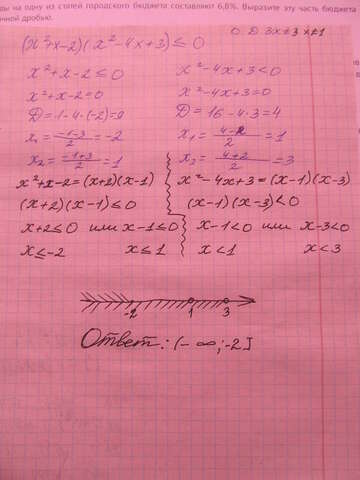 ды на одну из статей городского бюджета составляют 6,8%. Выразите эту часть бюджета
чной дробью.
(x²+x-2)(x²-4x+3)≤0
О. Д З x≠3 x≠1
x²+x-2≤0
x²+x-2=0
D=1-4·(-2)=9
x₁=(-1-3)/2=-2
x₂=(-1+3)/2=1
x²+x-2=(x+2)(x-1)
(x+2)(x-1)≤0
x+2≤0 или x-1≤0
x≤-2 x≤1
x²-4x+3<0
x²-4x+3=0
D=16-4·3=4
x₁=(4-2)/2=1
x₂=(4+2)/2=3
x²-4x+3=(x-1)(x-3)
(x-1)(x-3)<0
x-1<0 или x-3<0
x<1 x<3
-2 1 3
Ответ: (-∞;-2]